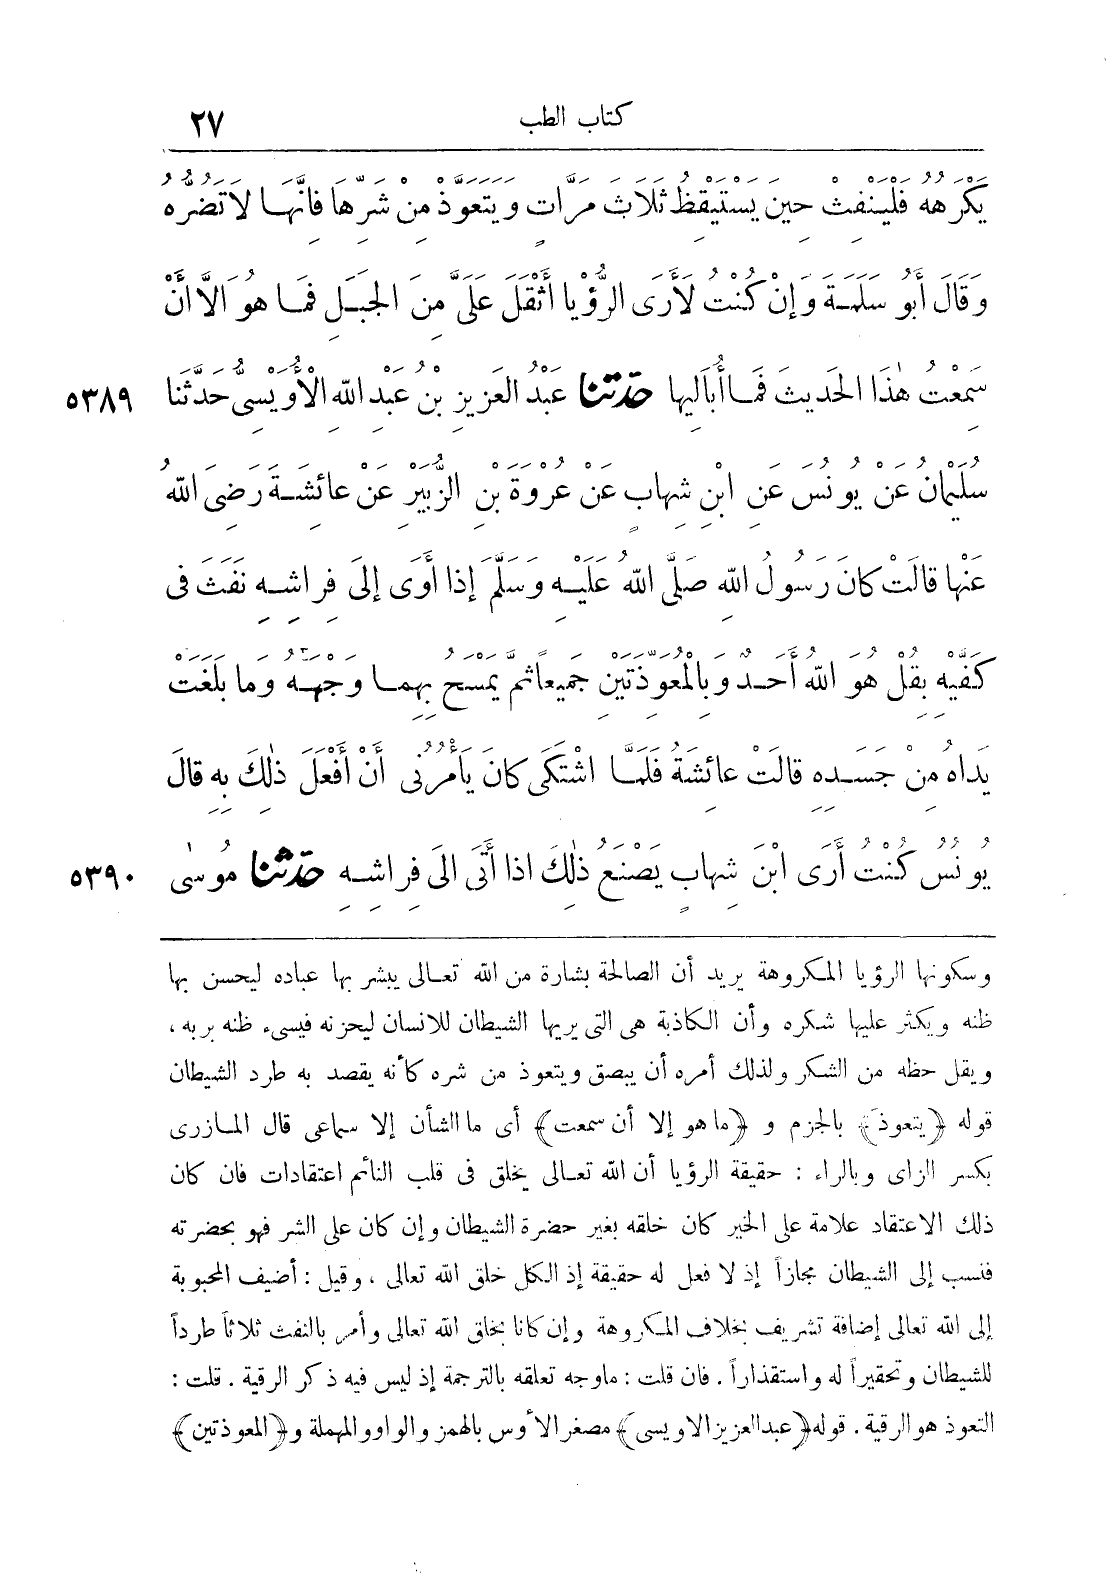 كتاب الطب ٢٧
يَكْرَهُهُ فَلْيَنْفِثْ حِينَ يَسْتَيْقِظُ ثَلَاثَ مَرَّاتٍ وَيَتَعَوَّذْ مِنْ شَرِّهَا فَإِنَّهَا لَا تَضُرُّهُ
وَقَالَ أَبُو سَلَمَةَ وَإِنْ كُنْتُ لَأَرَى الرُّؤْيَا أَثْقَلَ عَلَيَّ مِنَ الْجَبَلِ فَمَا هُوَ الَّا أَنْ
سَمِعْتُ هٰذَا الْحَدِيثَ فَمَا أُبَالِيهَا حدّثنا عَبْدُ الْعَزِيزِ بْنُ عَبْدِ اللّٰهِ الْأُوَيْسِىُّ حَدَّثَنَا ٥٣٨٩
سُلَيْمَانُ عَنْ يُونُسَ عَنِ ابْنِ شِهَابٍ عَنْ عُرْوَةَ بْنِ الزُّبَيْرِ عَنْ عَائِشَةَ رَضِىَ اللّٰهُ
عَنْهَا قَالَتْ كَانَ رَسُولُ اللّٰهِ صَلَّى اللّٰهُ عَلَيْهِ وَسَلَّمَ إِذَا أَوَى إِلَى فِرَاشِهِ نَفَثَ فِى
كَفَّيْهِ بِقُلْ هُوَ اللّٰهُ أَحَدٌ وَبِالْمُعَوِّذَتَيْنِ جَمِيعًا ثُمَّ يَمْسَحُ بِهِمَا وَجْهَهُ وَمَا بَلَغَتْ
يَدَاهُ مِنْ جَسَدِهِ قَالَتْ عَائِشَةُ فَلَمَّا اشْتَكَى كَانَ يَأْمُرُنِى أَنْ أَفْعَلَ ذٰلِكَ بِهِ قَالَ
يُونُسُ كُنْتُ أَرَى ابْنَ شِهَابٍ يَصْنَعُ ذٰلِكَ اذَا أَتَى الَى فِرَاشِهِ حدّثنا مُوسٰى ٥٣٩٠
وسكونها الرؤيا المكروهة يريد أن الصالحة بشارة من الله تعالى يبشر بها عباده ليحسن بها
ظنه ويكثر عليها شكره وأن الكاذبة هى التى يريها الشيطان للانسان ليحزنه فيسىء ظنه بربه ،
ويقل حظه من الشكر ولذلك أمره أن يبصق ويتعوذ من شره كأنه يقصد به طرد الشيطان
قوله ﴿يتعوذ﴾ بالجزم و ﴿ما هو إلا أن سمعت﴾ أى ما الشأن إلا سماعى قال المازرى
بكسر الزاى وبالراء : حقيقة الرؤيا أن الله تعالى يخلق فى قلب النائم اعتقادات فان كان
ذلك الاعتقاد علامة على الخير كان خلقه بغير حضرة الشيطان وإن كان على الشر فهو بحضرته
فنسب إلى الشيطان مجازاً إذ لا فعل له حقيقة إذ الكل خلق الله تعالى ، وقيل : أضيف المحبوبة
إلى الله تعالى إضافة تشريف بخلاف المكروهة وإن كانا بخلق الله تعالى وأمر بالنفث ثلاثاً طرداً
للشيطان وتحقيراً له واستقذاراً . فان قلت : ماوجه تعلقه بالترجمة إذ ليس فيه ذكر الرقية . قلت :
التعوذ هو الرقية . قوله ﴿عبد العزيز الاويسى﴾ مصغر الأوس بالهمز والواو والمهملة و﴿المعوذتين﴾